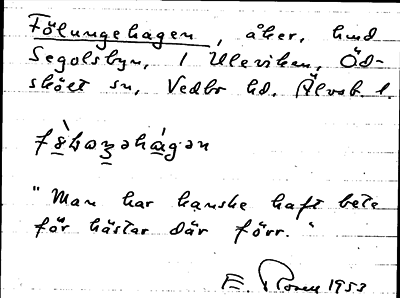 Fölungehagen, åker, hmd
Segolsbyn, 1 Uleviken, Öd-
skölt sn, Vedbo hd, Älvsb. l.
"Man har kanske haft bete
för hästar där förr."
E. Rosell 1953